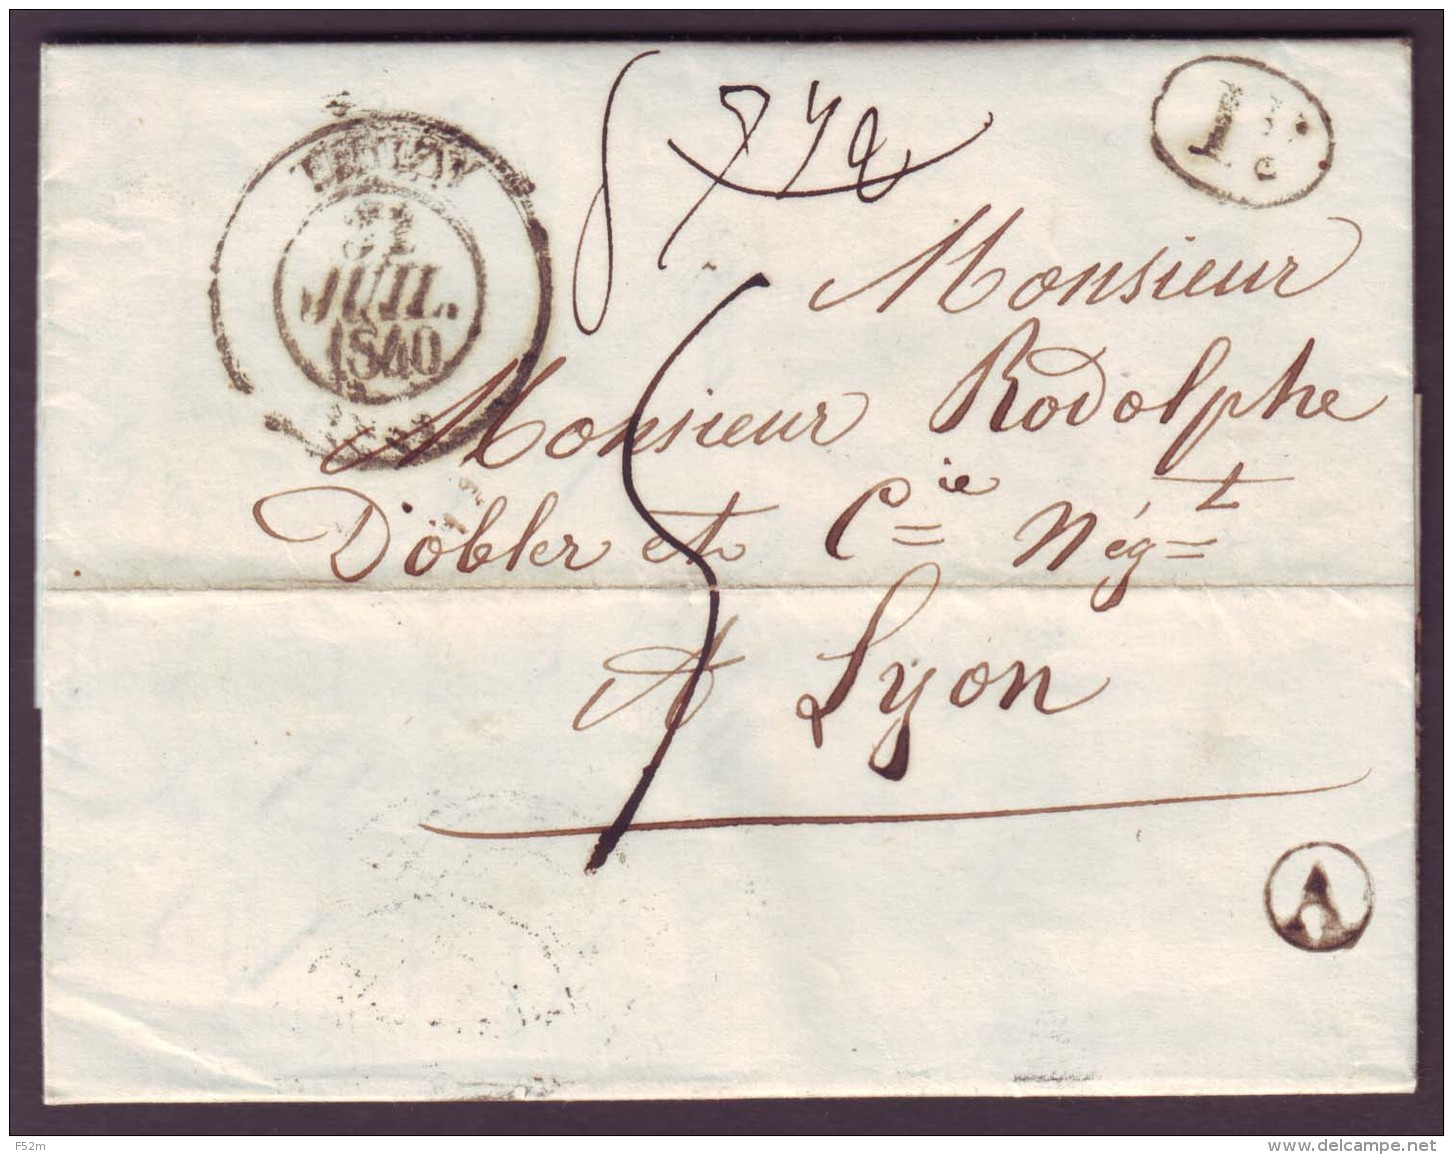 31
JUIL.
1840
Monsieur
Monsieur Rodolphe
Dobler et C.ie Nég.t
A Lyon
A
F52m
www.delcampe.net